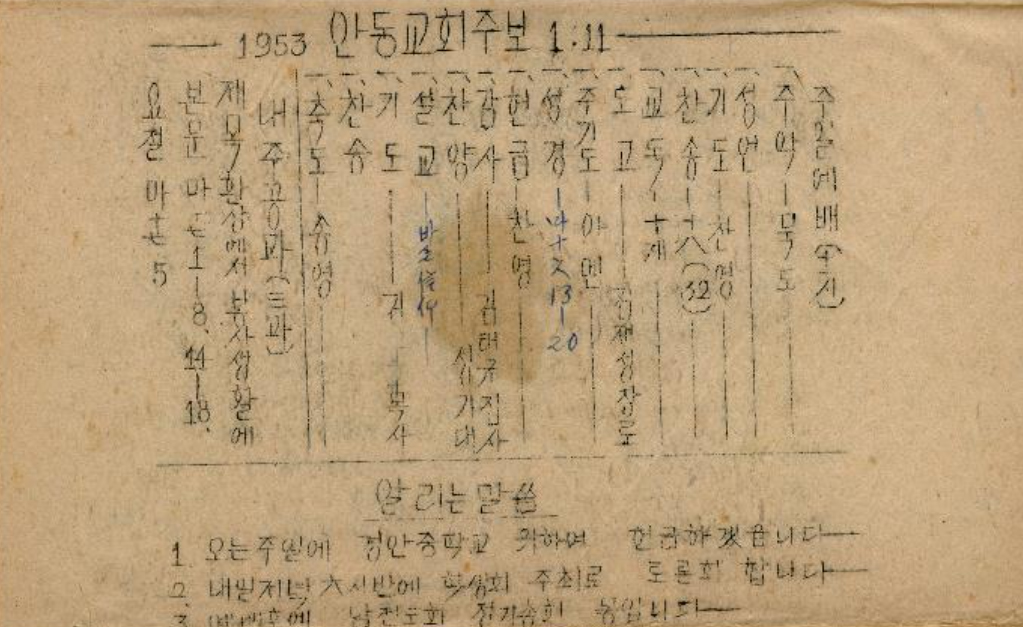 1953 안동교회주보 1:11
주일예배(수진)
주악 묵도
성언
기도 찬영
찬송 十八(32)
교독 十재
도고 김재성장로
주기도 아멘
성경 13-20
헌금 찬영
감사 김태규집사
찬양 심기대
설교
기도 김 목사
찬송
축도 송영
내주공과(三과)
제목 환상에서 봉사생활에
본문 마 1-8, 14-18.
요절 마 5
알리는말씀
1. 오는주일에 경안중학교 위하여 헌금하겠읍니다
2. 내일저녁 六시반에 학생회 주최로 토론회 합니다
3. 예배후에 남전도회 정기총회 입니다